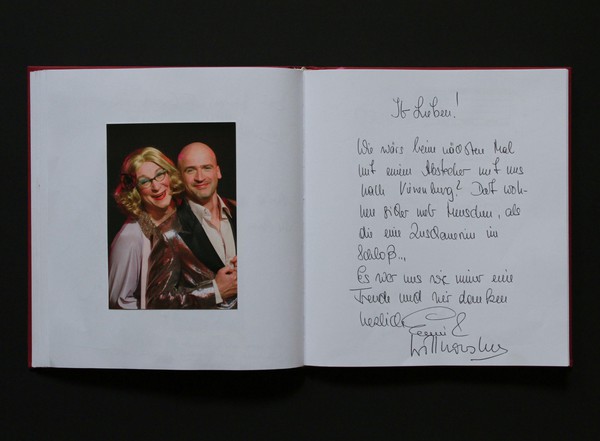 Ihr Lieben!
Wie wärs beim nächsten Mal
mit einem Abstecher mit uns
nach Vienenburg? Dort woh-
nen sicher mehr Menschen, als
die eine Zuschauerin im
Schloß...
Es war uns wie immer eine
Freude und wir danken
herzlich
&